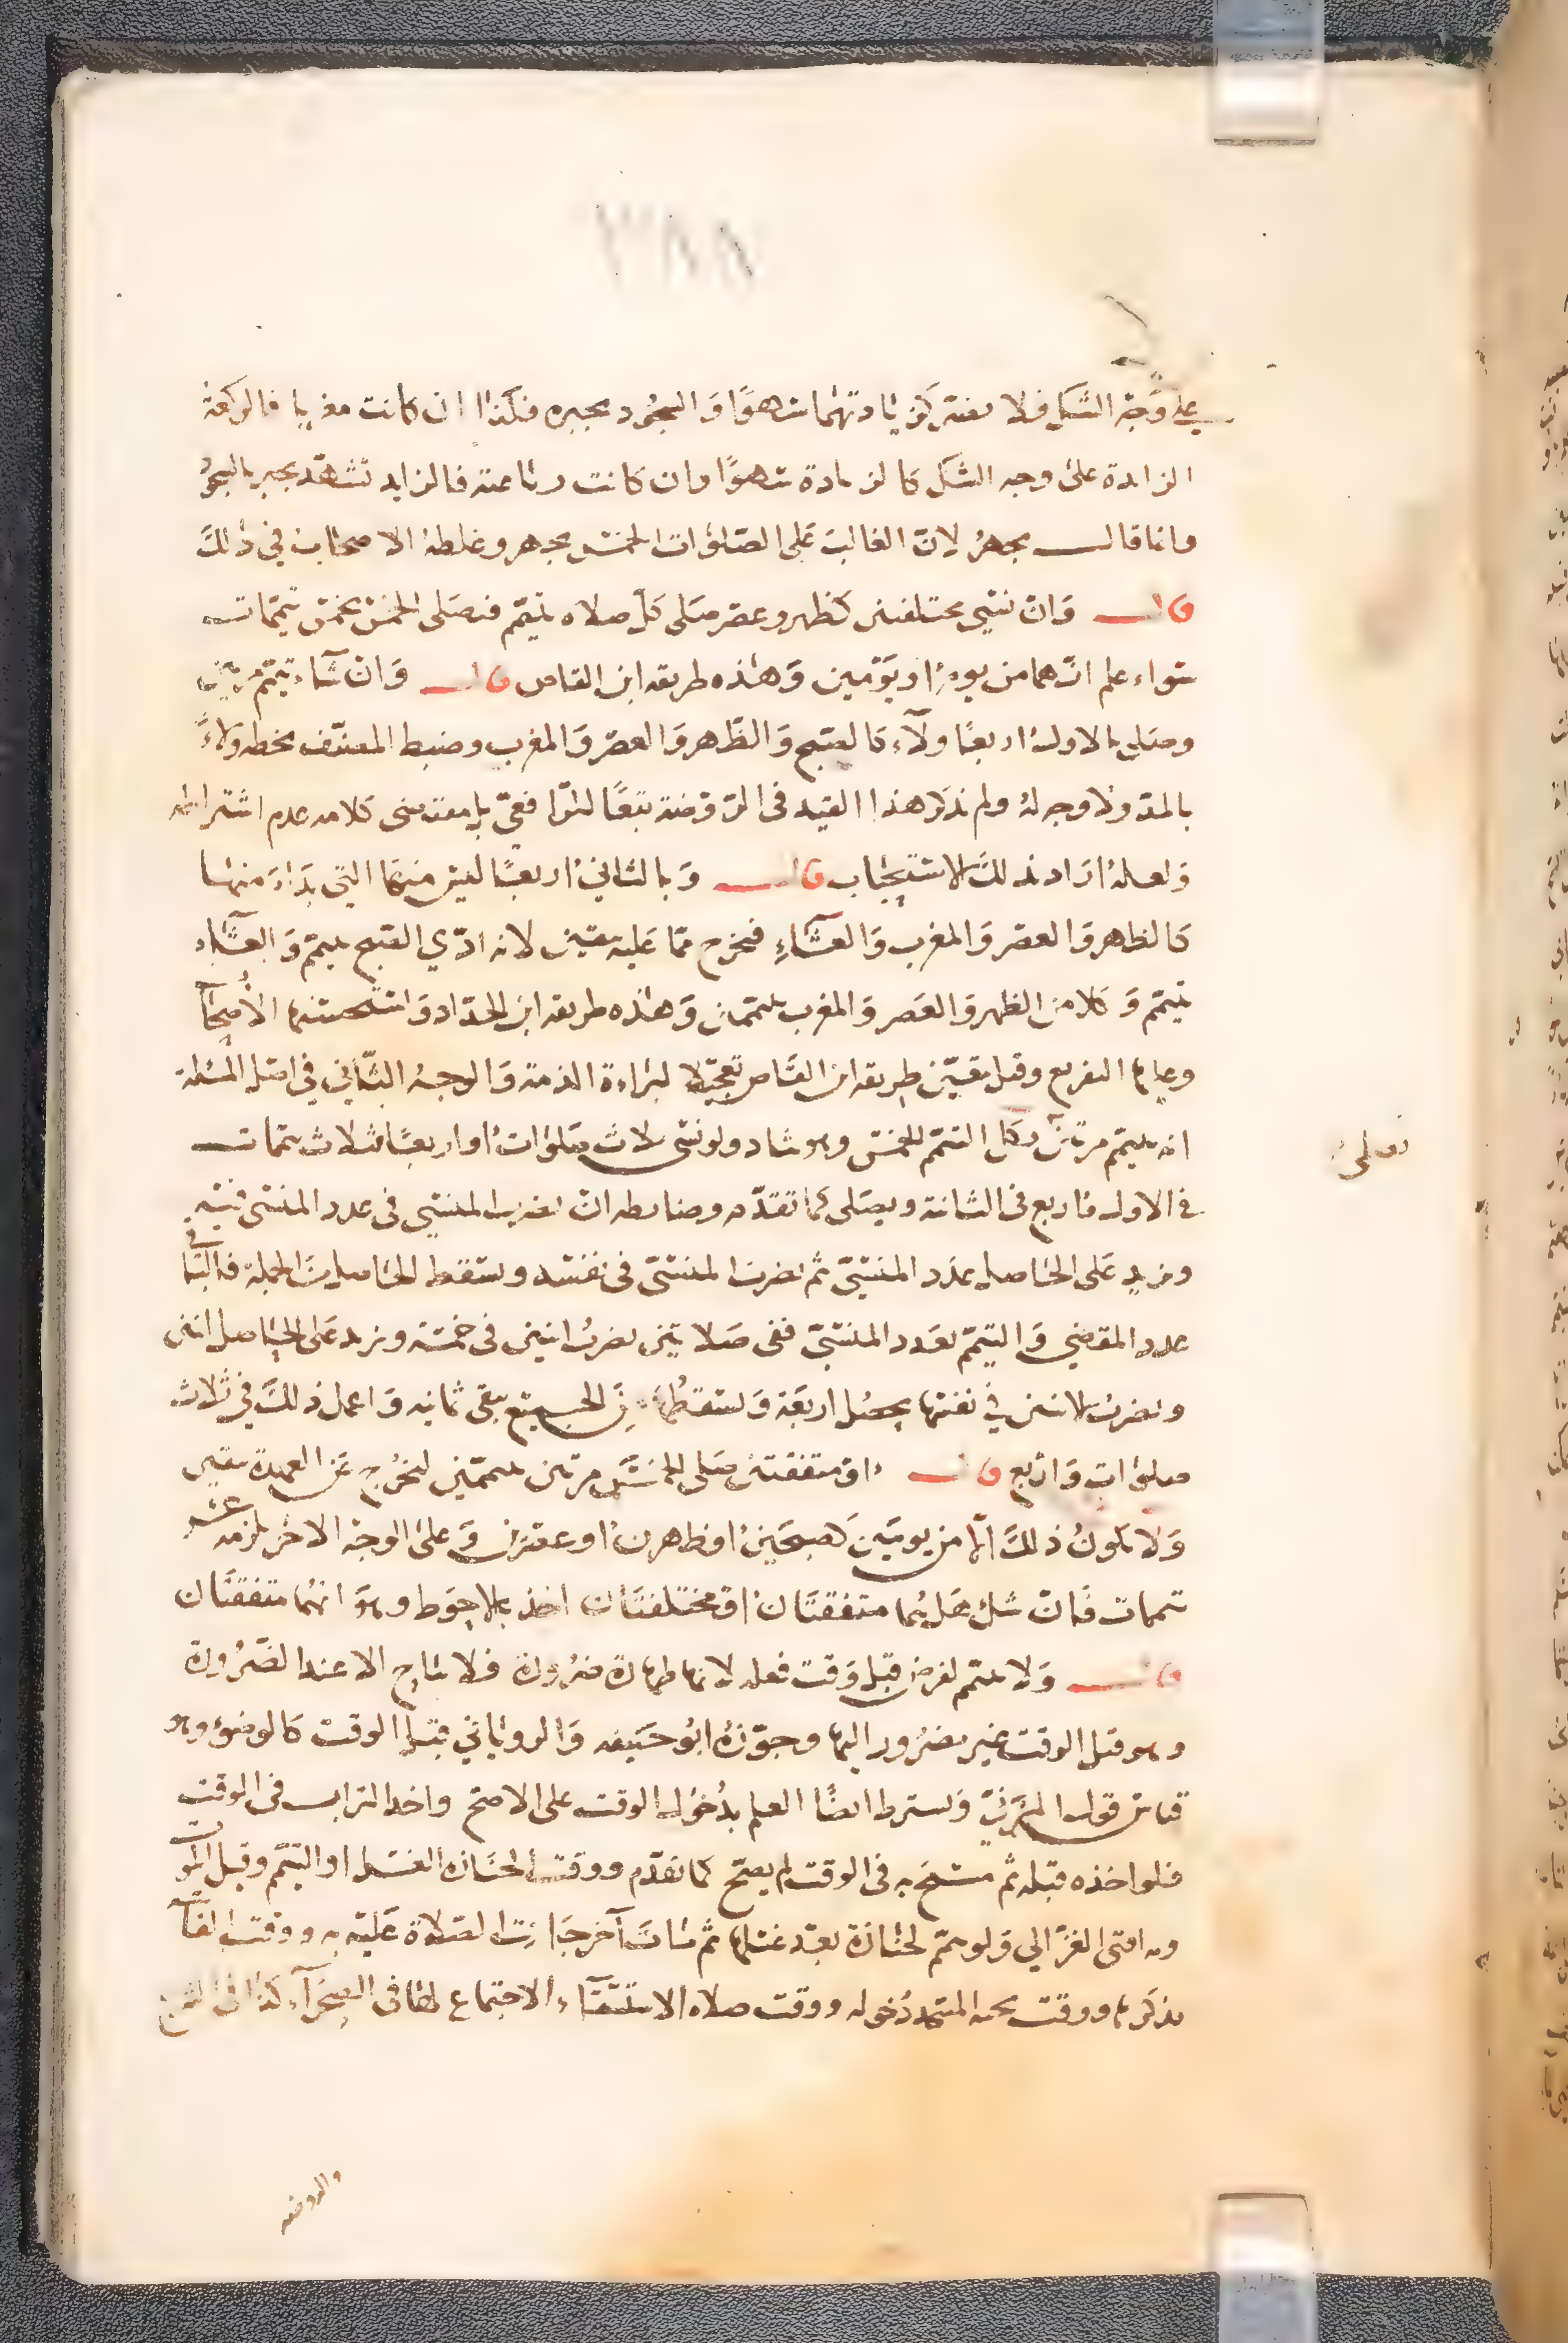 ٣٨٨
على وجه الشك فلا يضر كزيادتهما سهوا والسجود يجبره فكذا ان كانت مغربا فالركعة
الزايدة على وجه الشك كالزيادة سهوا وان كانت رباعية فالزايد تشهد يجبر بالسجود
وانما قال يجهر لان الغالب على الصلوات الخمس يجهر وغلطه الاصحاب في ذلك
قال وان نسي مختلفتين كظهر وعصر صلى كل صلاه بتيمم فيصلى الخمس بخمس تيممات
سواء علم انهما من يوم او يومين وهذه طريقه ابن القاص قال وان شاء تيمم مرتين
وصلى بالاول اربعا ولاء كالصبح والظهر والعصر والمغرب وضبط المصنف بخطه ولاء
بالمد ولا وجه له ولم يذكر هذا القيد في الروضة تبعا للرافعي بل مقتضى كلامه عدم اشتراطه
ولعله اراد بذلك الاستحباب قال وبالثاني اربعا ليس منها التي بدا منها
كالظهر والعصر والمغرب والعشاء فيخرج مما عليه بيقين لانه ادي الصبح بتيمم والعشاء
بتيمم وكلا من الظهر والعصر والمغرب بتيممين وهذه طريقه ابن الحداد واستحسنها الاصحاب
وعليها التفريع وقيل يتعين طريقه ابن القاص تعجيلا لبراءة الذمة والوجه الثاني في اصل المسئلة
انه يتيمم مرتين بكل التيمم الخمس وهو شاذ ولو نسى ثلاث صلوات او اربعا فثلاث تيممات
في الاولى واربع في الثانية ويصلى كما تقدم وضابطه ان يضرب المنسي في عدد المنسي فيه
ويزيد على الحاصل عدد المنسي ثم يضرب المنسي في نفسه ويسقط الحاصل من الجملة فالباقي
عدد المقضي والتيمم بعدد المنسي ففي صلاتين يضرب اثنين في خمسة ويزيد على الحاصل اثنين
ويضرب الاثنين في نفسها يحصل اربعة ويسقطها من الجميع يبقى ثمانيه واعمل ذلك في ثلاث
صلوات واربع قال او متفقتين صلى الخمس مرتين بتيممين ليخرج عن العهدة بيقين
ولا يكون ذلك الا من يومين كصبحين او ظهرين او عصرين وعلى الوجه الاخر يلزمه عشر
تيممات فان شك هل هما متفقتان او مختلفتان اخذ بالاحوط وهو انهما متفقتان
قال ولا يتيمم لفرض قبل وقت فعله لانها طهارة ضرورة فلا يباح الا عند الضرورة
وهو قبل الوقت غير مضرور اليها وجوزه ابو حنيفه والروياني قبل الوقت كالوضوء وهو
قياس قول المزني ويشترط ايضا العلم بدخول الوقت على الاصح واخذ التراب في الوقت
فلو اخذه قبله ثم مسح به في الوقت لم يصح كما تقدم ووقت الجنازه الغسل او التيمم وقيل الموت
وبه افتى الغزالي ولو تيمم لجنازة بعد غسلها ثم مات آخر جازت الصلاة عليه به ووقت الفائتة
بذكرها ووقت تحيه المسجد دخوله ووقت صلاه الاستسقاء الاجتماع لها في الصحراء كذا في الشرح
والروضه